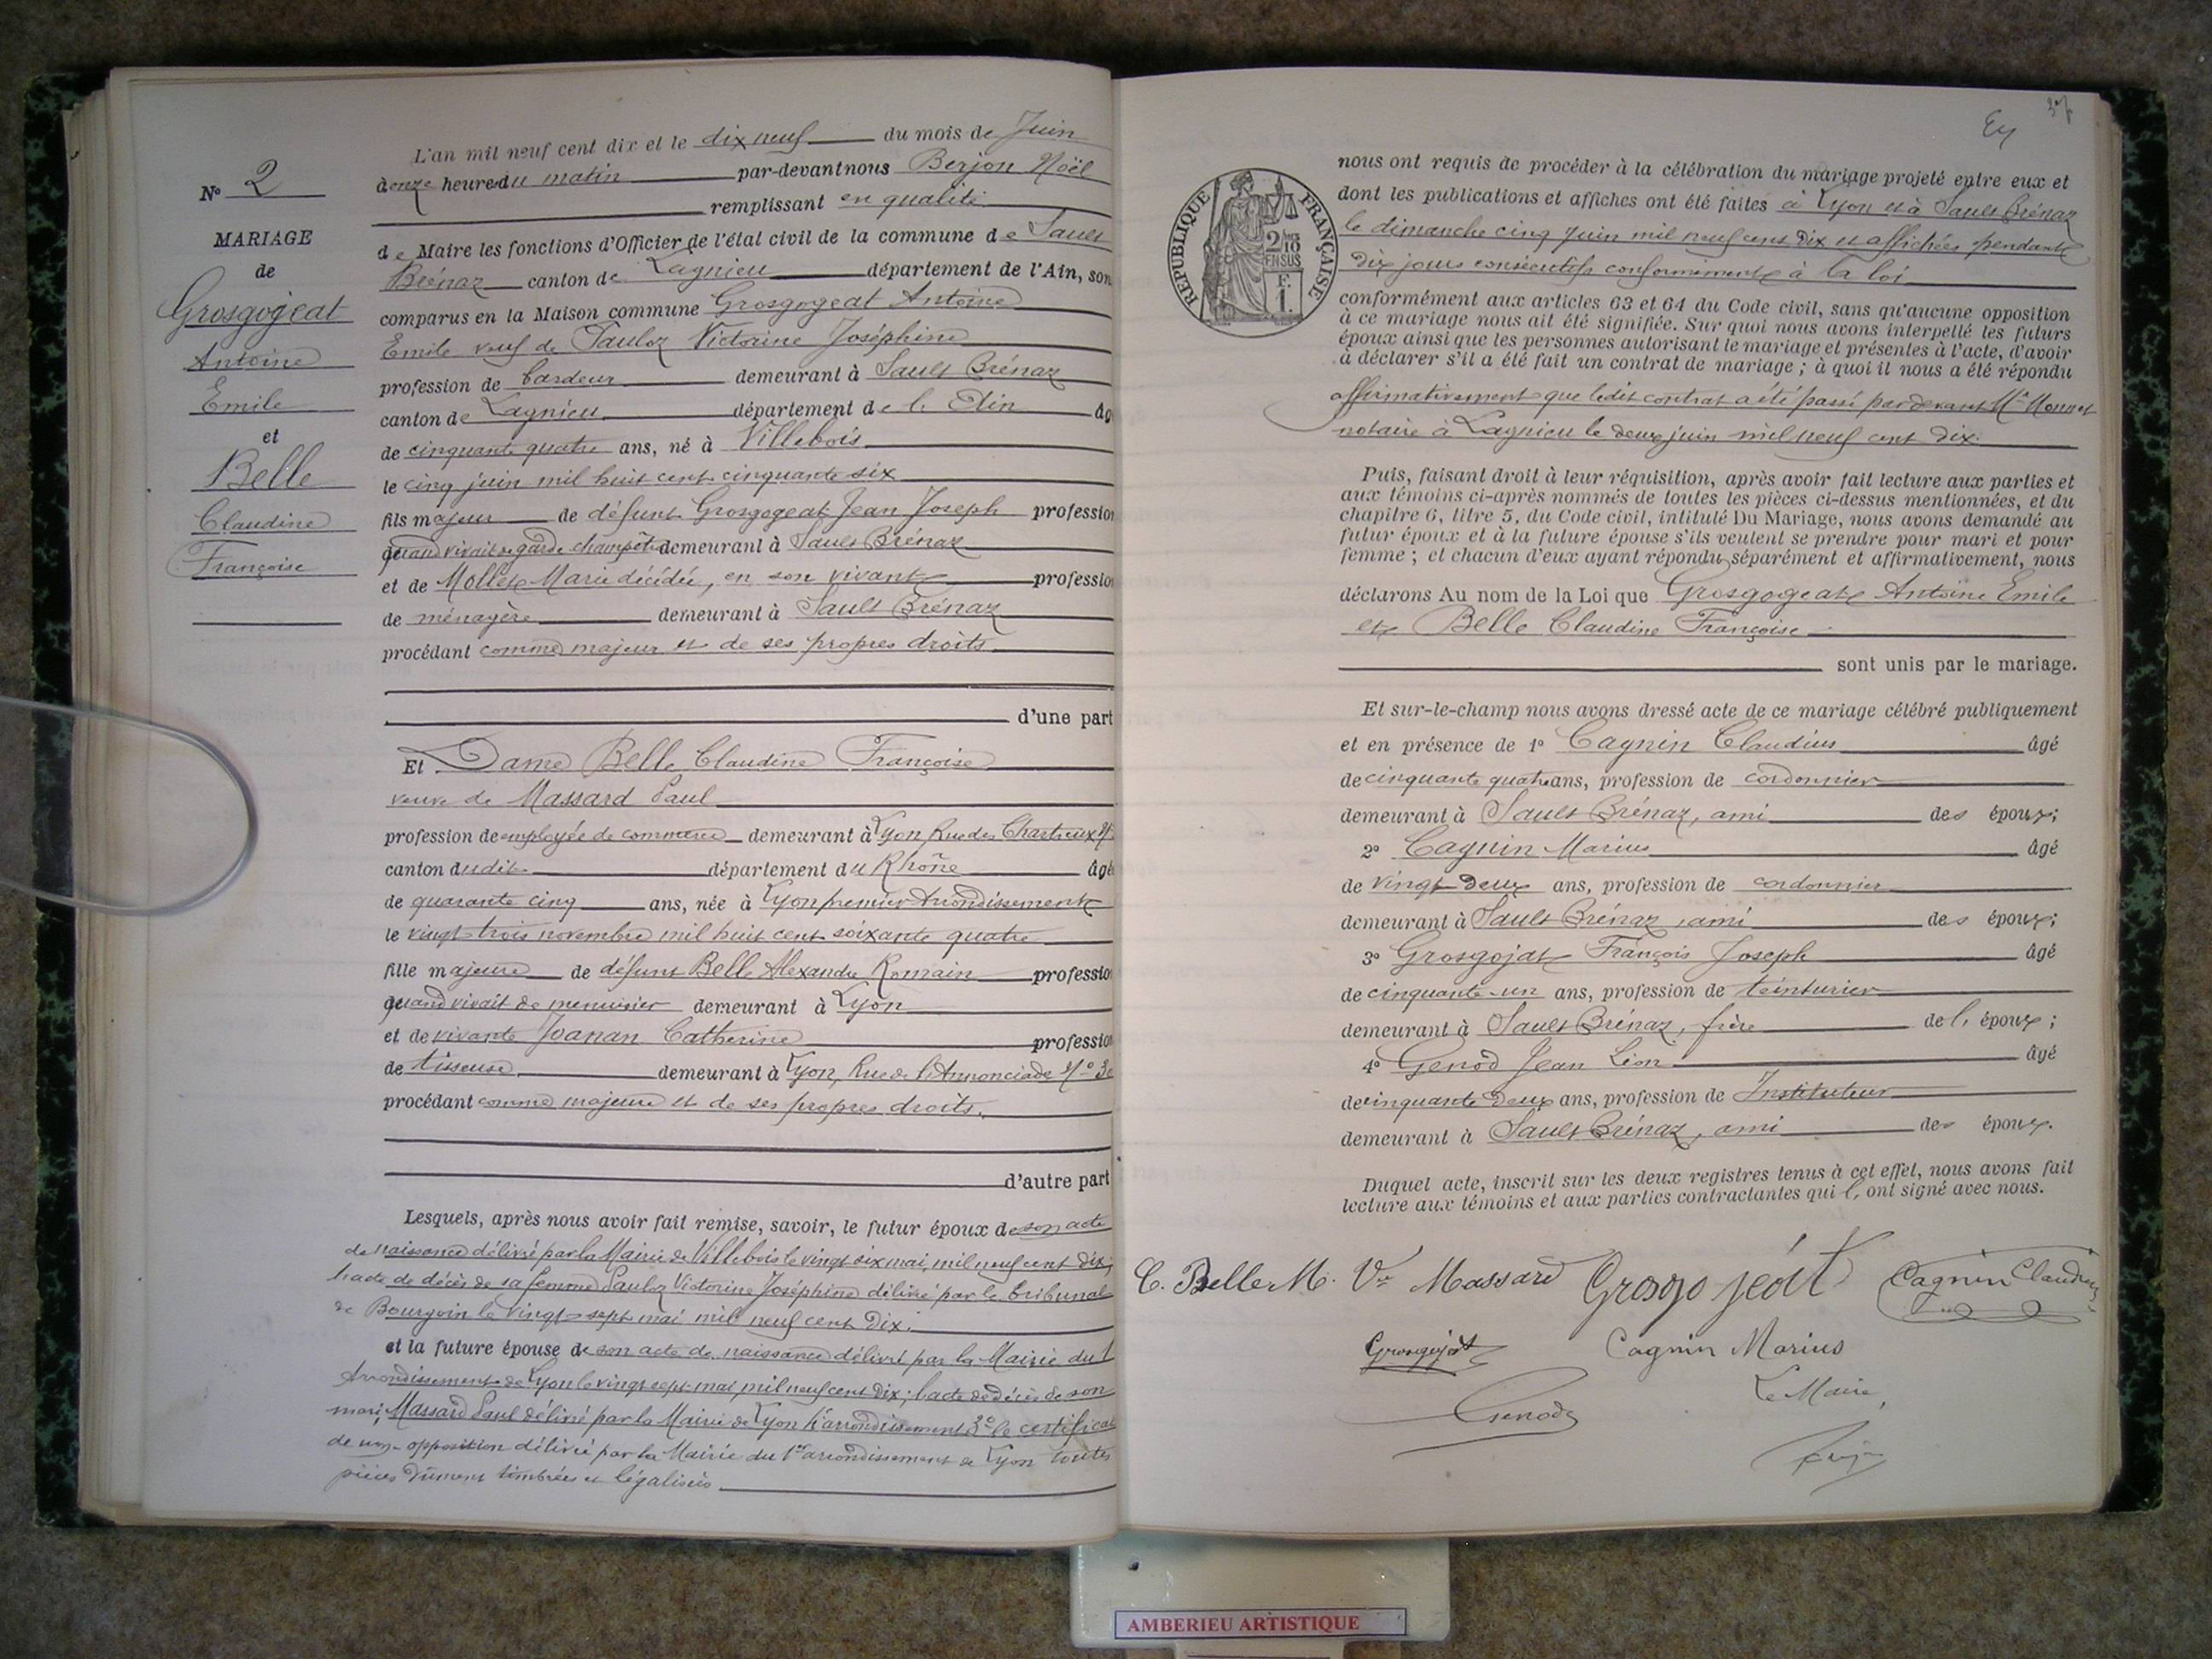 L'an mil neuf cent dix et le dix neuf du mois de Juin
à onze heures du matin par-devant nous Berjon Noël
remplissant en qualité
de Maire les fonctions d'Officier de l'état civil de la commune de Sault
Brénaz canton de Lagnieu département de l'Ain, son
comparus en la Maison commune Grosgogeat Antoine
Emile veuf de Pauloz Victorine Joséphine
profession de cardeur demeurant à Sault Brénaz
canton de Lagnieu département de l'Ain âg
de cinquante quatre ans, né à Villebois
le cinq juin mil huit cent cinquante six
fils majeur de défunt Grosgogeat Jean Joseph professio
quand vivait garde champêtre demeurant à Sault Brénaz
et de Mollex Marie décédée, en son vivant professio
de ménagère demeurant à Sault Brénaz
procédant comme majeur et de ses propres droits
d'une part
N° 2
MARIAGE
de
Grosgogeat
Antoine
Emile
et
Belle
Claudine
Françoise
Et Dame Belle Claudine Françoise
veuve de Massard Paul
profession de employée de commerce demeurant à Lyon Rue des Chartreux
canton dudit département du Rhône âgé
de quarante cinq ans, née à Lyon premier Arrondissement
le vingt trois novembre mil huit cent soixante quatre
fille majeure de défunt Belle Alexandre Romain professio
quand vivait de menuisier demeurant à Lyon
et de vivante Joanan Catherine professio
de tisseuse demeurant à Lyon, Rue de l'Annonciade N° 30
procédant comme majeure et de ses propres droits.
d'autre part
Lesquels, après nous avoir fait remise, savoir, le futur époux de son acte
de naissance délivré par la Mairie de Villebois le vingt six mai mil neuf cent dix;
l'acte de décès de sa femme Pauloz Victorine Joséphine délivré par le tribunal
de Bourgoin le vingt sept mai mil neuf cent dix.
et la future épouse de son acte de naissance délivré par la Mairie du 1
Arrondissement de Lyon le vingt sept mai mil neuf cent dix; l'acte de décès de son
mari, Massard Paul délivré par la Mairie de Lyon arrondissement 3° le certificat
de non-opposition délivré par la Mairie du 1er arrondissement de Lyon toutes
pièces dûment timbrées et légalisées
37
REPUBLIQUE FRANÇAISE
2/10
EN SUS
F.
1.
nous ont requis de procéder à la célébration du mariage projeté entre eux et
dont les publications et affiches ont été faites à Lyon et à Sault Brénaz
le dimanche cinq juin mil neuf cent dix et affichées pendant
dix jours consécutifs conformément à la loi
conformément aux articles 63 et 64 du Code civil, sans qu'aucune opposition
à ce mariage nous ait été signifiée. Sur quoi nous avons interpellé les futurs
époux ainsi que les personnes autorisant le mariage et présentes à l'acte, d'avoir
à déclarer s'il a été fait un contrat de mariage ; à quoi il nous a été répondu
affirmativement que ledit contrat a été passé par devant Me Monnet
notaire à Lagnieu le deux juin mil neuf cent dix.
Puis, faisant droit à leur réquisition, après avoir fait lecture aux parties et
aux témoins ci-après nommés de toutes les pièces ci-dessus mentionnées, et du
chapitre 6, titre 5, du Code civil, intitulé Du Mariage, nous avons demandé au
futur époux et à la future épouse s'ils veulent se prendre pour mari et pour
femme ; et chacun d'eux ayant répondu séparément et affirmativement, nous
déclarons Au nom de la Loi que Grosgogeat Antoine Emile
et Belle Claudine Françoise
sont unis par le mariage.
Et sur-le-champ nous avons dressé acte de ce mariage célébré publiquement
et en présence de 1° Cagnin Claudius âgé
de cinquante quatre ans, profession de cordonnier
demeurant à Sault Brénaz, ami des époux;
2° Cagnin Marius âgé
de vingt-deux ans, profession de cordonnier
demeurant à Sault Brénaz, ami des époux;
3° Grosgojat François Joseph âgé
de cinquante-un ans, profession de teinturier
demeurant à Sault Brénaz, frère de l'époux;
4° Genod Jean Léon âgé
de cinquante deux ans, profession de Instituteur
demeurant à Sault Brénaz, ami des époux.
Duquel acte, inscrit sur les deux registres tenus à cet effet, nous avons fait
lecture aux témoins et aux parties contractantes qui l'ont signé avec nous.
C. Belle M. Ve Massard Grosgojeat Cagnin Claudius
Grosgojat Cagnin Marius
Genod Le Maire,
AMBERIEU ARTISTIQUE